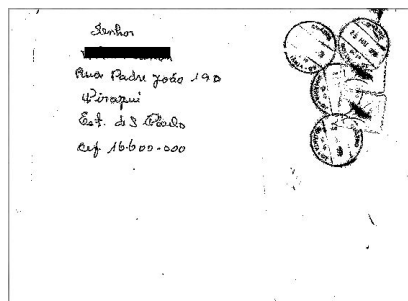 Senhor
Rua Padre João 190
Pirajui
Est. de S. Paulo
cep 16.600-000